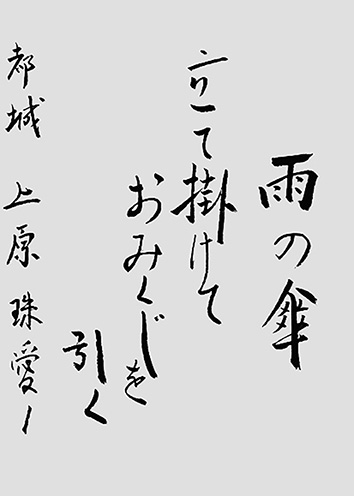 雨の傘
立て掛けて
おみくじを
引く
都城 上原珠愛